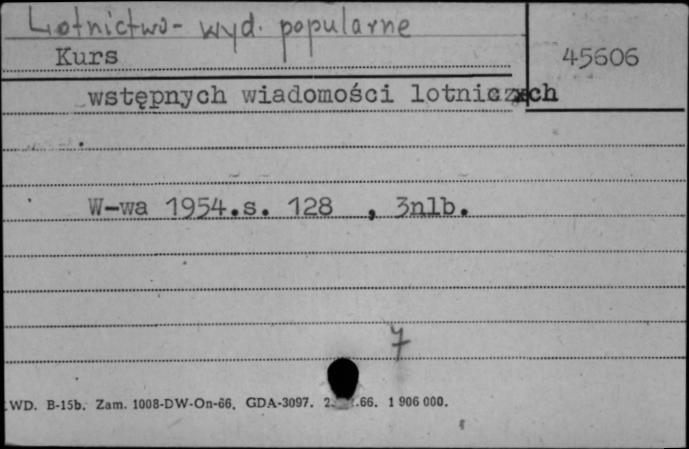 Lotnictwo - wyd. popularne
Kurs
45606
wstępnych wiadomości lotniczych
W-wa 1954.s. 128 , 3nlb.
7
WD. B-15b. Zam. 1008-DW-On-66. GDA-3097. .66. 1 906 000.